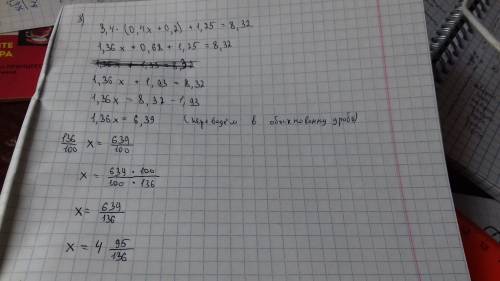 3)
3,4 · (0,4x + 0,2) + 1,25 = 8,32
1,36x + 0,68 + 1,25 = 8,32
1,36x + 1,93 = 8,32
1,36x + 1,93 = 8,32
1,36x = 8,32 - 1,93
1,36x = 6,39 (переведём в обыкновенную дробь)
136/100 x = 639/100
x = 639 · 100 / 100 · 136
x = 639/136
x = 4 95/136